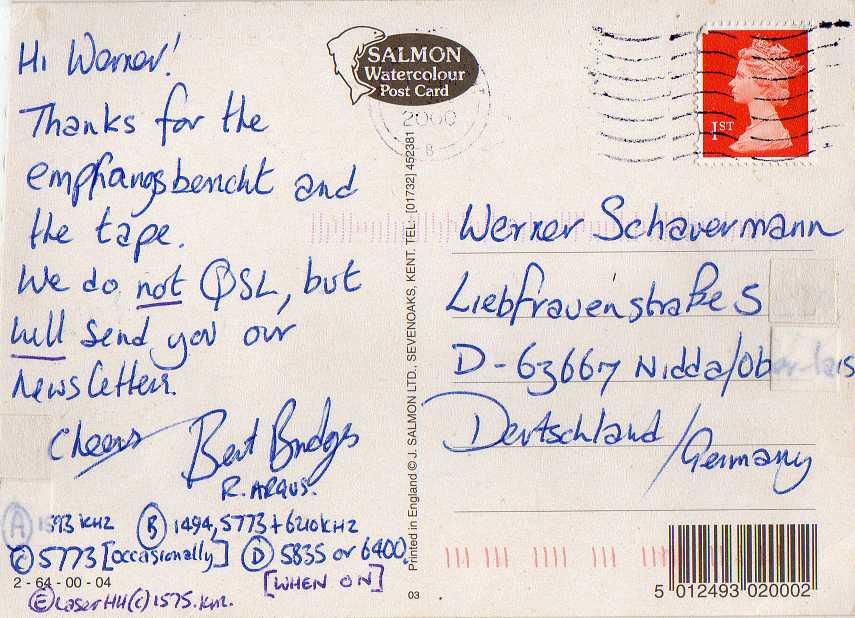 Hi Werner!
Thanks for the
empfangsbericht and
the tape.
We do not QSL, but
will send you our
newsletters.
Cheers Bert Bridges
R. ARGUS.
(A) 1593 KHZ (B) 1494, 5773 + 6210 KHZ
(C) 5773 [occasionally] (D) 5835 or 6400.
[WHEN ON]
2-64-00-04
(E) Laser HH (c) 1575. KHZ.
SALMON
Watercolour
Post Card
2000
8
1ST
Printed in England © J. SALMON LTD., SEVENOAKS, KENT. TEL: [01732] 452381
03
Werner Schauermann
Liebfrauenstraße 5
D-63667 Nidda/Ober-Lais
Deutschland
/Germany
5 012493 020002